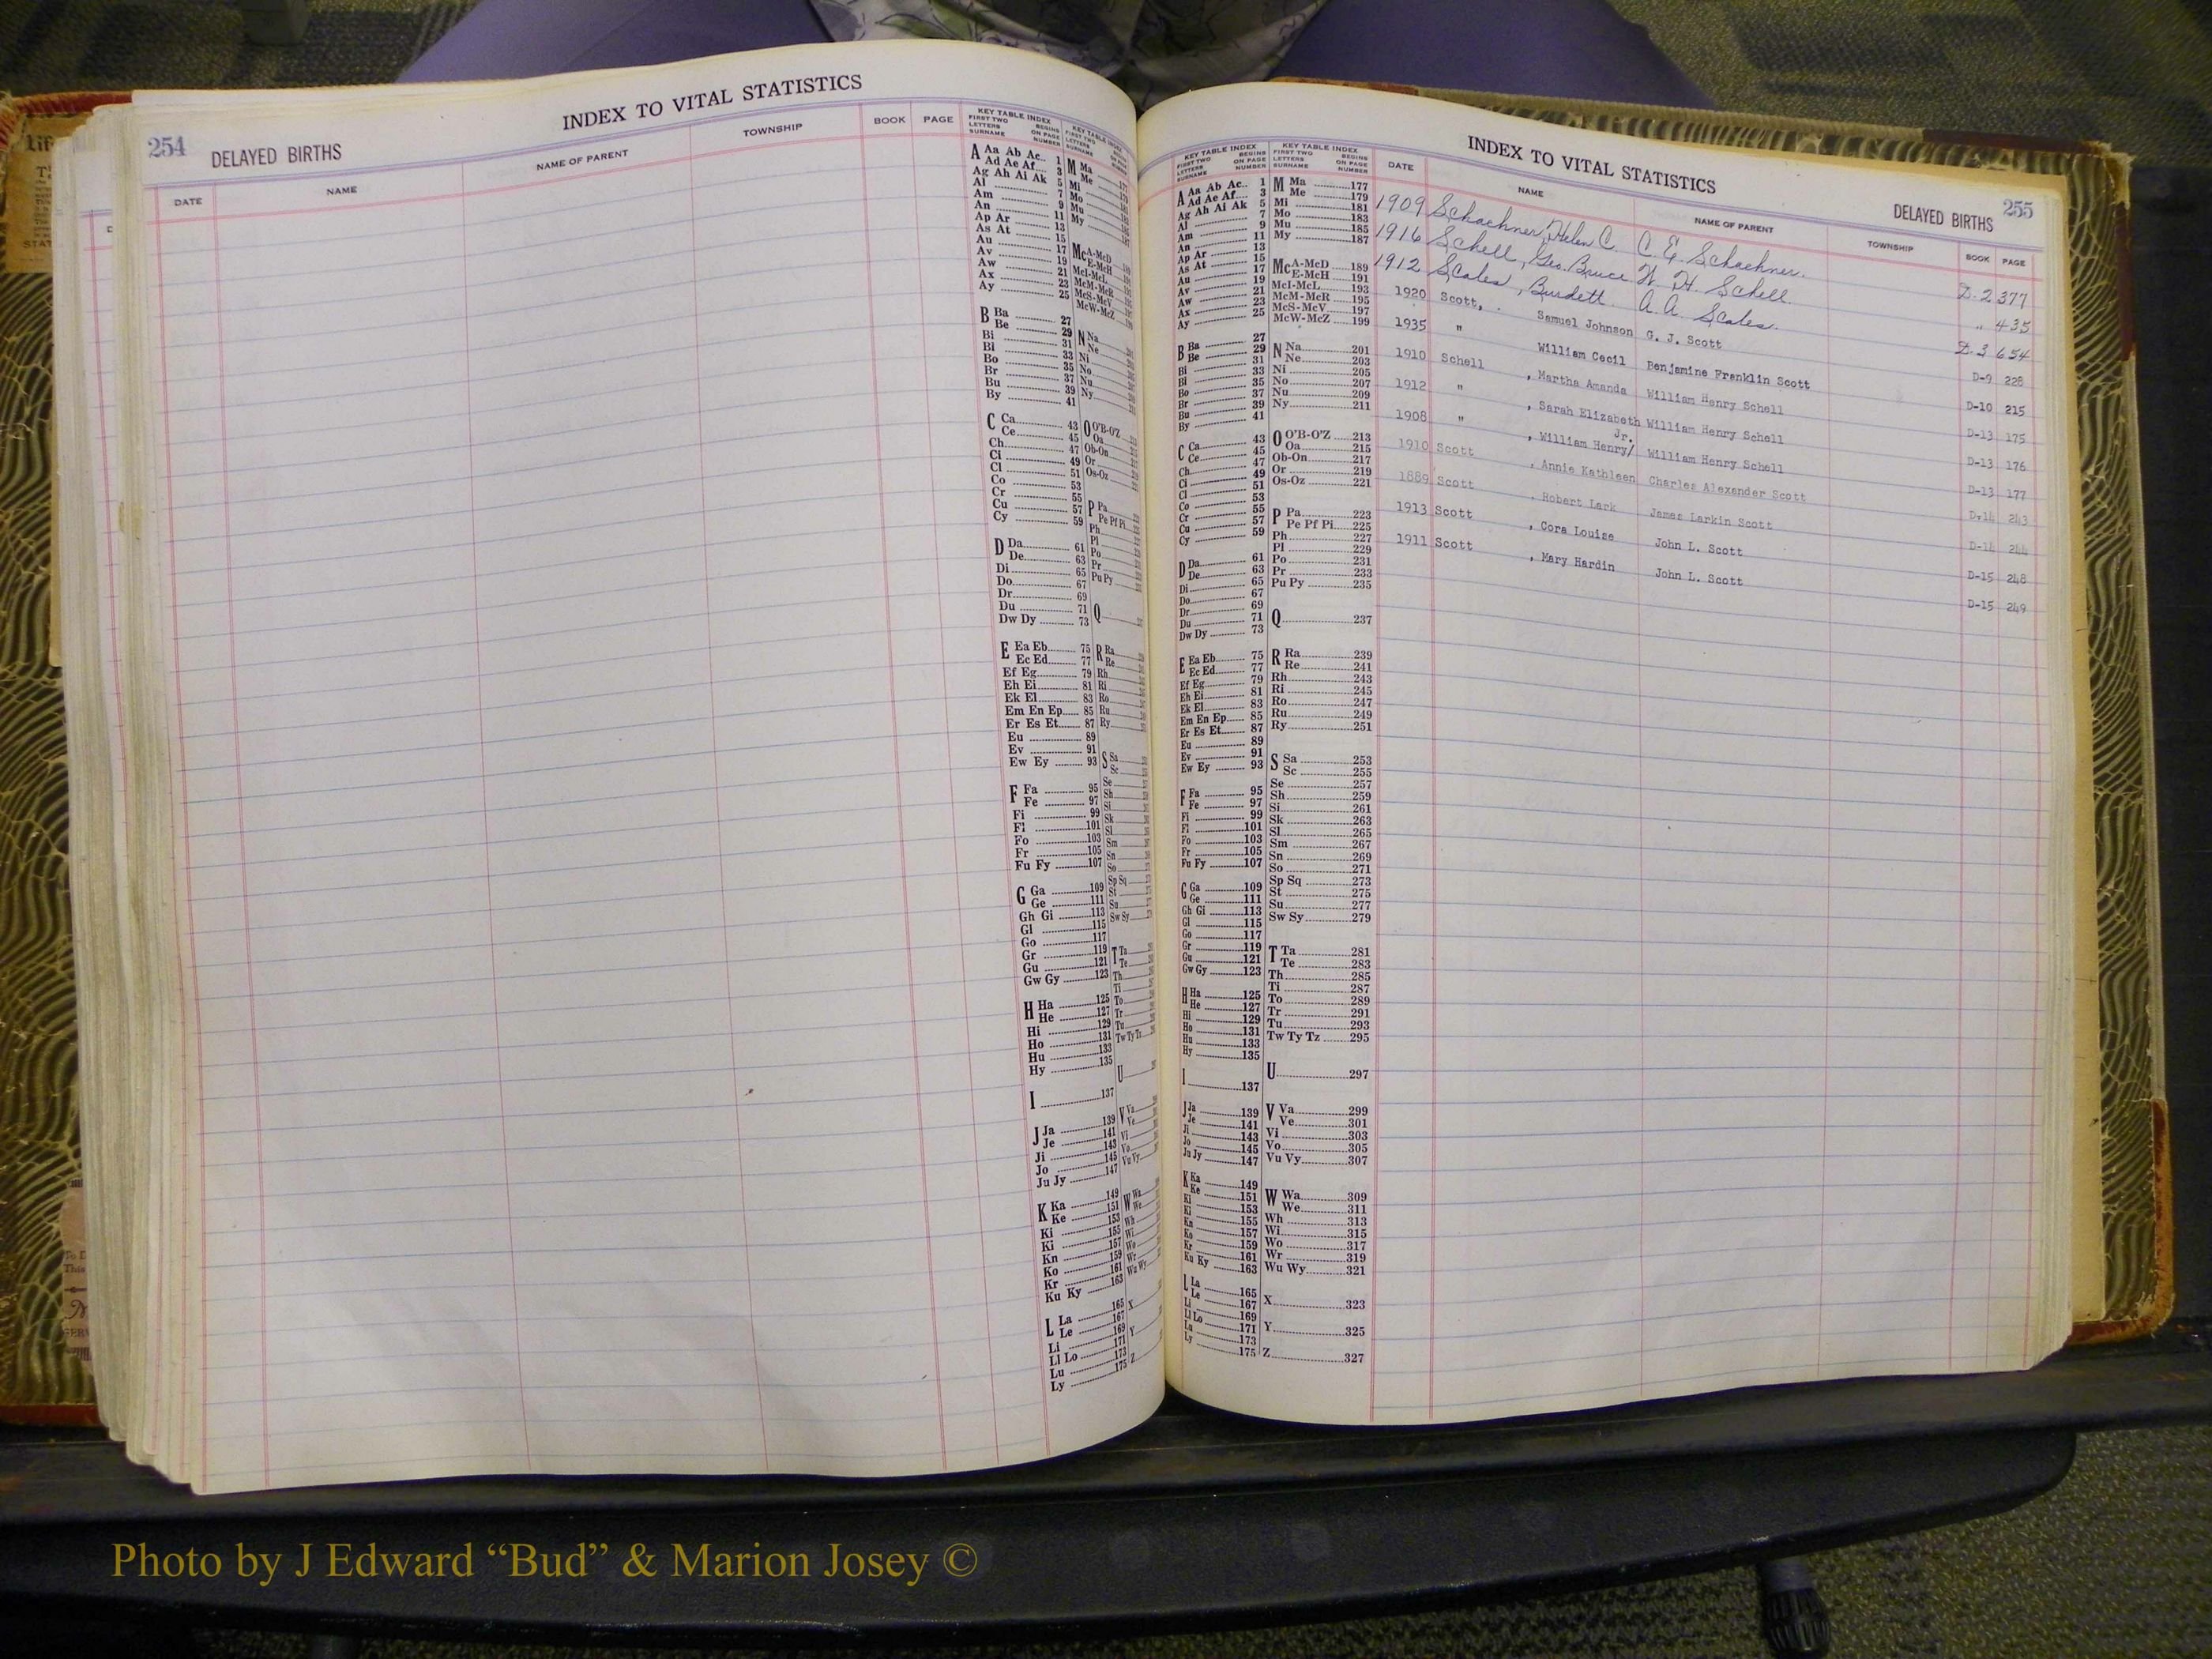 254
DELAYED BIRTHS
INDEX TO VITAL STATISTICS
DATE NAME NAME OF PARENT TOWNSHIP BOOK PAGE
KEY TABLE INDEX
FIRST TWO LETTERS SURNAME BEGINS ON PAGE NUMBER
A Aa Ab Ac 1
Ad Ae Af 3
Ag Ah Ai Ak 5
Al 7
Am 9
An 11
Ap Ar 13
As At 15
Au 17
Av 19
Aw 21
Ax 23
Ay 25
B Ba 27
Be 29
Bi 31
Bl 33
Bo 35
Br 37
Bu 39
By 41
C Ca 43
Ce 45
Ch 47
Ci 49
Cl 51
Co 53
Cr 55
Cu 57
Cy 59
D Da 61
De 63
Di 65
Do 67
Dr 69
Du 71
Dw Dy 73
E Ea Eb 75
Ec Ed 77
Ef Eg 79
Eh Ei 81
Ek El 83
Em En Ep 85
Er Es Et 87
Eu 89
Ev 91
Ew Ey 93
F Fa 95
Fe 97
Fi 99
Fl 101
Fo 103
Fr 105
Fu Fy 107
G Ga 109
Ge 111
Gh Gi 113
Gl 115
Go 117
Gr 119
Gu 121
Gw Gy 123
H Ha 125
He 127
Hi 129
Ho 131
Hu 133
Hy 135
I 137
J Ja 139
Je 141
Ji 143
Jo 145
Ju Jy 147
K Ka 149
Ke 151
Ki 153
Ki 155
Kn 157
Ko 159
Kr 161
Ku Ky 163
L La 165
Le 167
Li 169
Ll Lo 171
Lu 173
Ly 175
INDEX TO VITAL STATISTICS
DELAYED BIRTHS
255
KEY TABLE INDEX
FIRST TWO LETTERS SURNAME BEGINS ON PAGE NUMBER
KEY TABLE INDEX
FIRST TWO LETTERS SURNAME BEGINS ON PAGE NUMBER
M Ma 177
Me 179
Mi 181
Mo 183
Mu 185
My 187
Mc A-McD 189
E-McH 191
McI-McL 193
McM-McR 195
McS-McV 197
McW-McZ 199
N Na 201
Ne 203
Ni 205
No 207
Nu 209
Ny 211
O O'B-O'Z 213
Oa 215
Ob-On 217
Or 219
Os-Oz 221
P Pa 223
Pe Pf Pi 225
Ph 227
Pl 229
Po 231
Pr 233
Pu Py 235
Q 237
R Ra 239
Re 241
Rh 243
Ri 245
Ro 247
Ru 249
Ry 251
S Sa 253
Sc 255
Se 257
Sh 259
Si 261
Sk 263
Sl 265
Sm 267
Sn 269
So 271
Sp Sq 273
St 275
Su 277
Sw Sy 279
T Ta 281
Te 283
Th 285
Ti 287
To 289
Tr 291
Tu 293
Tw Ty Tz 295
U 297
V Va 299
Ve 301
Vi 303
Vo 305
Vu Vy 307
W Wa 309
We 311
Wh 313
Wi 315
Wo 317
Wr 319
Wu Wy 321
X 323
Y 325
Z 327
DATE NAME NAME OF PARENT TOWNSHIP BOOK PAGE
1909 Schachner, Helen C. C. E. Schachner. D. 2 377
1916 Schell, Geo. Bruce W. H. Schell " 435
1912 Scales, Burdett A. A. Scales. D. 3 654
1920 Scott, Samuel Johnson G. J. Scott D-9 228
1935 " William Cecil Benjamine Franklin Scott D-10 215
1910 Schell , Martha Amanda William Henry Schell D-13 175
1912 " , Sarah Elizabeth William Henry Schell D-13 176
1908 " , William Henry/ Jr. William Henry Schell D-13 177
1910 Scott , Annie Kathleen Charles Alexander Scott D-14 243
1889 Scott , Robert Lark James Larkin Scott D-14 244
1913 Scott , Cora Louise John L. Scott D-15 248
1911 Scott , Mary Hardin John L. Scott D-15 249
Photo by J Edward “Bud” & Marion Josey ©